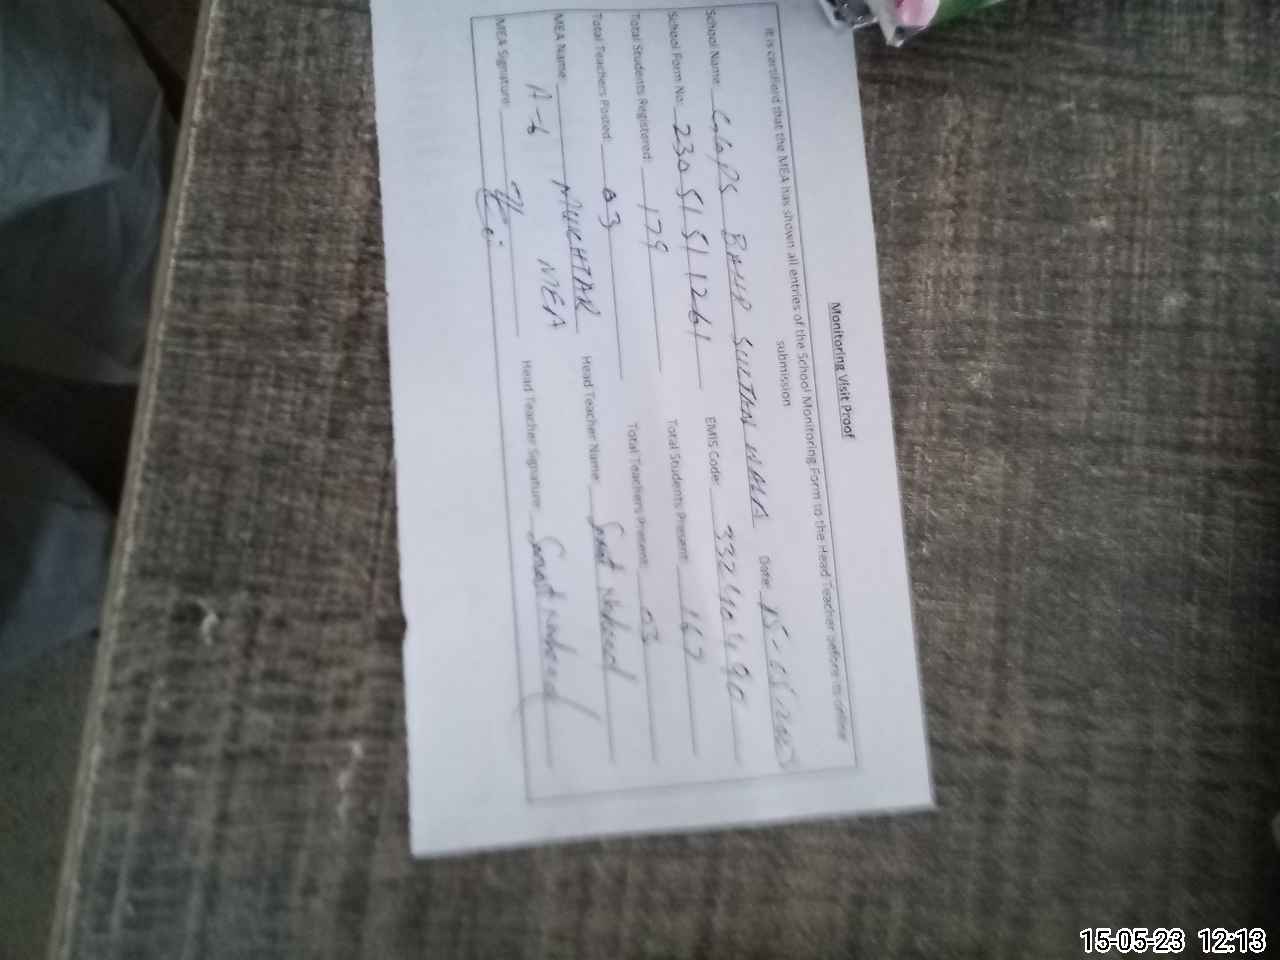 Monitoring Visit Proof
It is certified that the MEA has shown all entries of the School Monitoring Form to the Head Teacher before its online
submission
School Name: GGPS SULTAN WALA Date: 15-05-2023
School Form No: 23051511261 EMIS Code: 33240490
Total Students Registered: 179 Total Students Present: 167
Total Teachers Posted: 03 Total Teachers Present: 03
MEA Name: MUKHTAR Head Teacher Name: Naheed
MEA
MEA Signature: Head Teacher Signature: Naheed
15-05-23 12:13